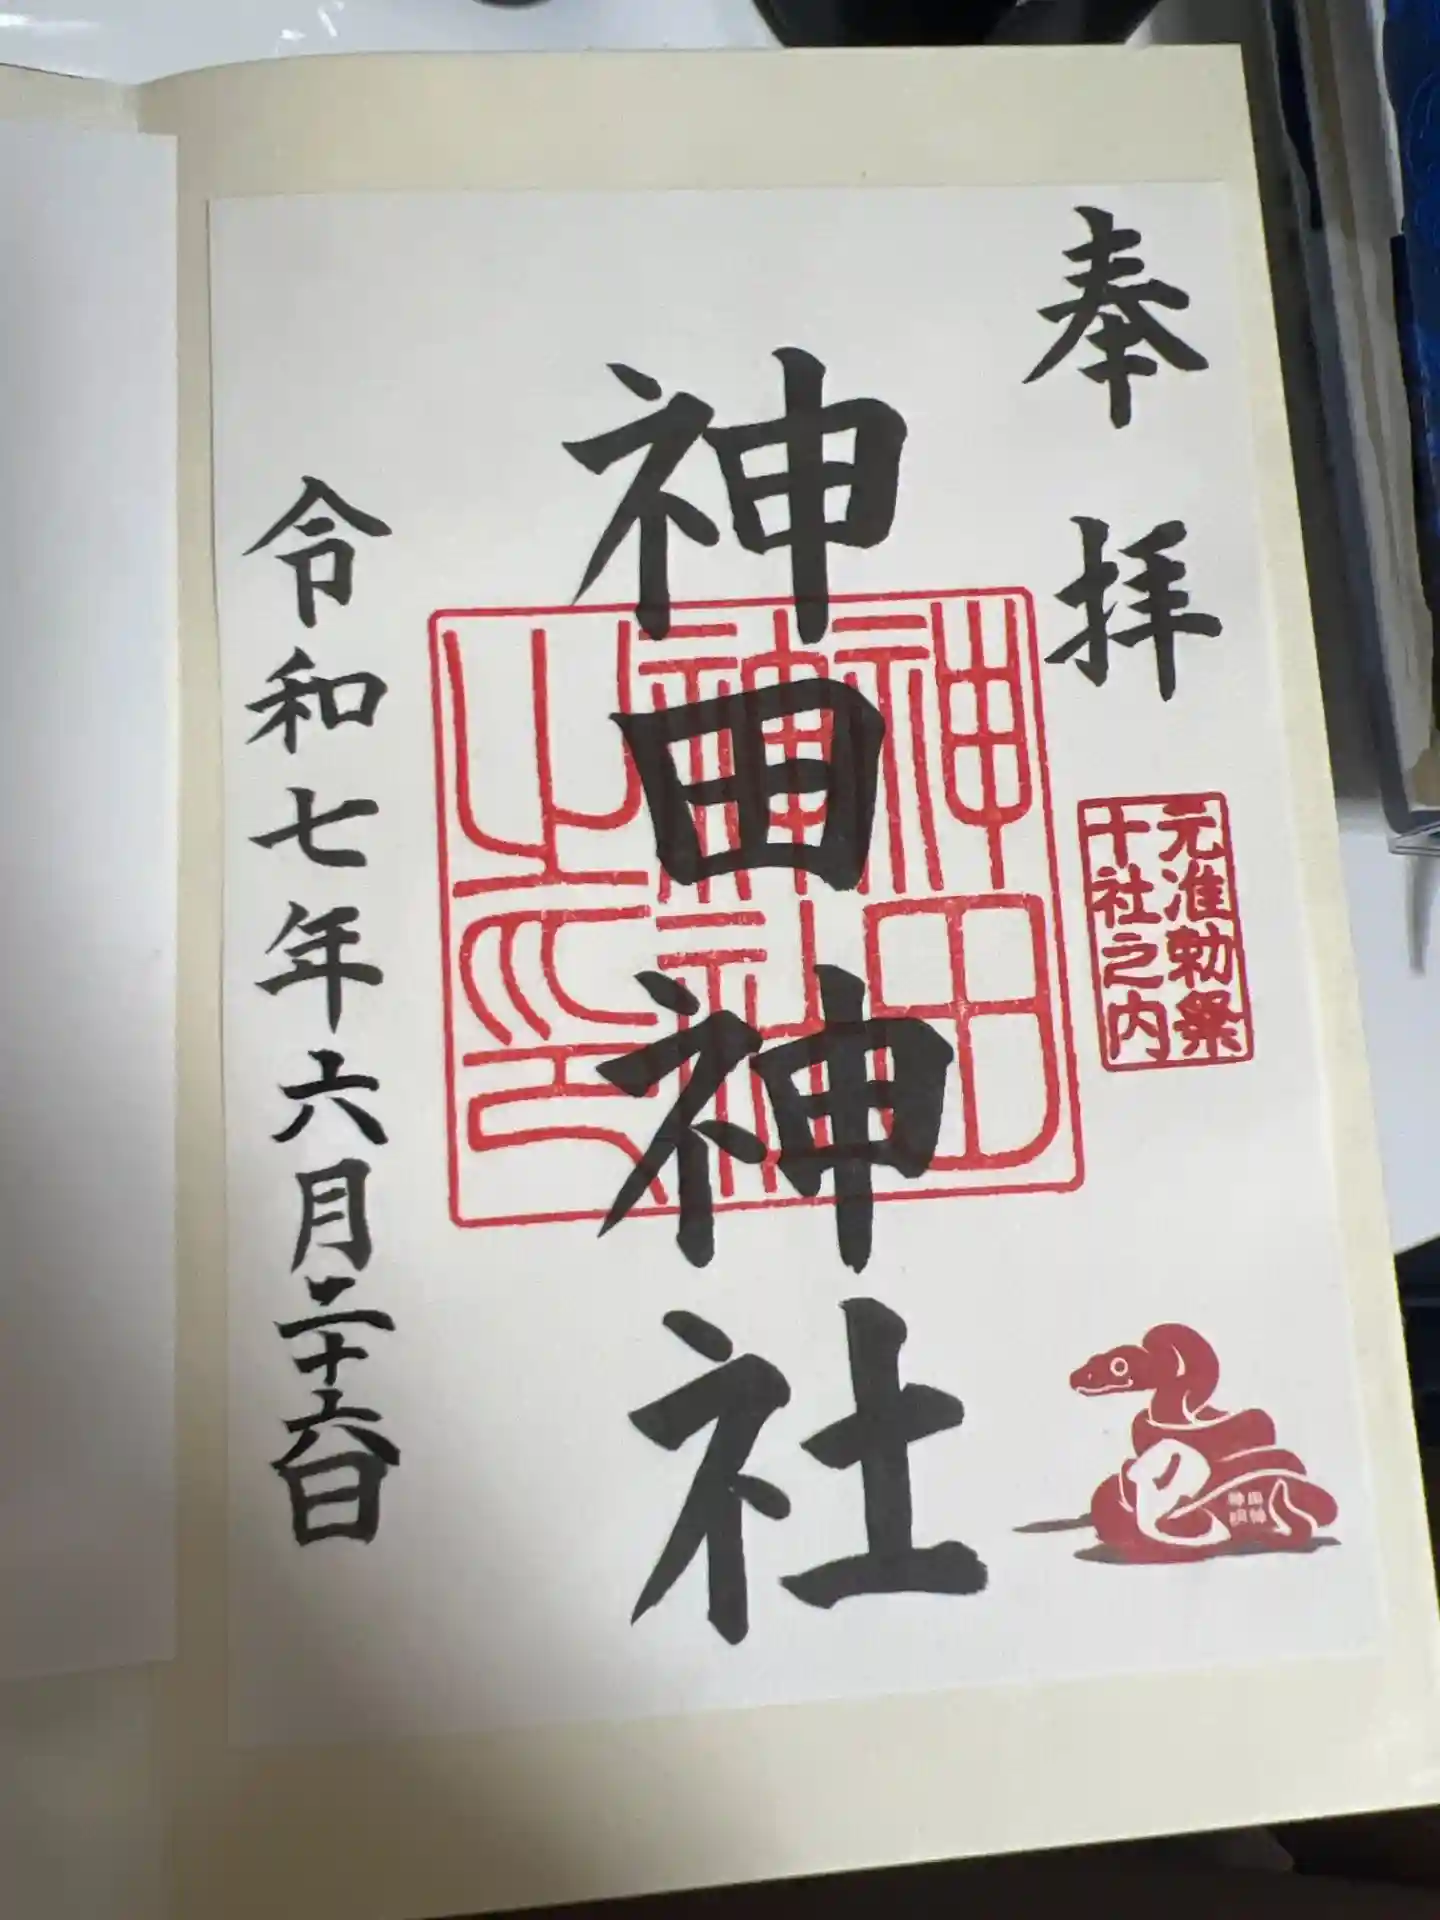 奉拝
元准勅祭
十社之内
巳
神田神社
神田神社之印
令和七年六月二十六日